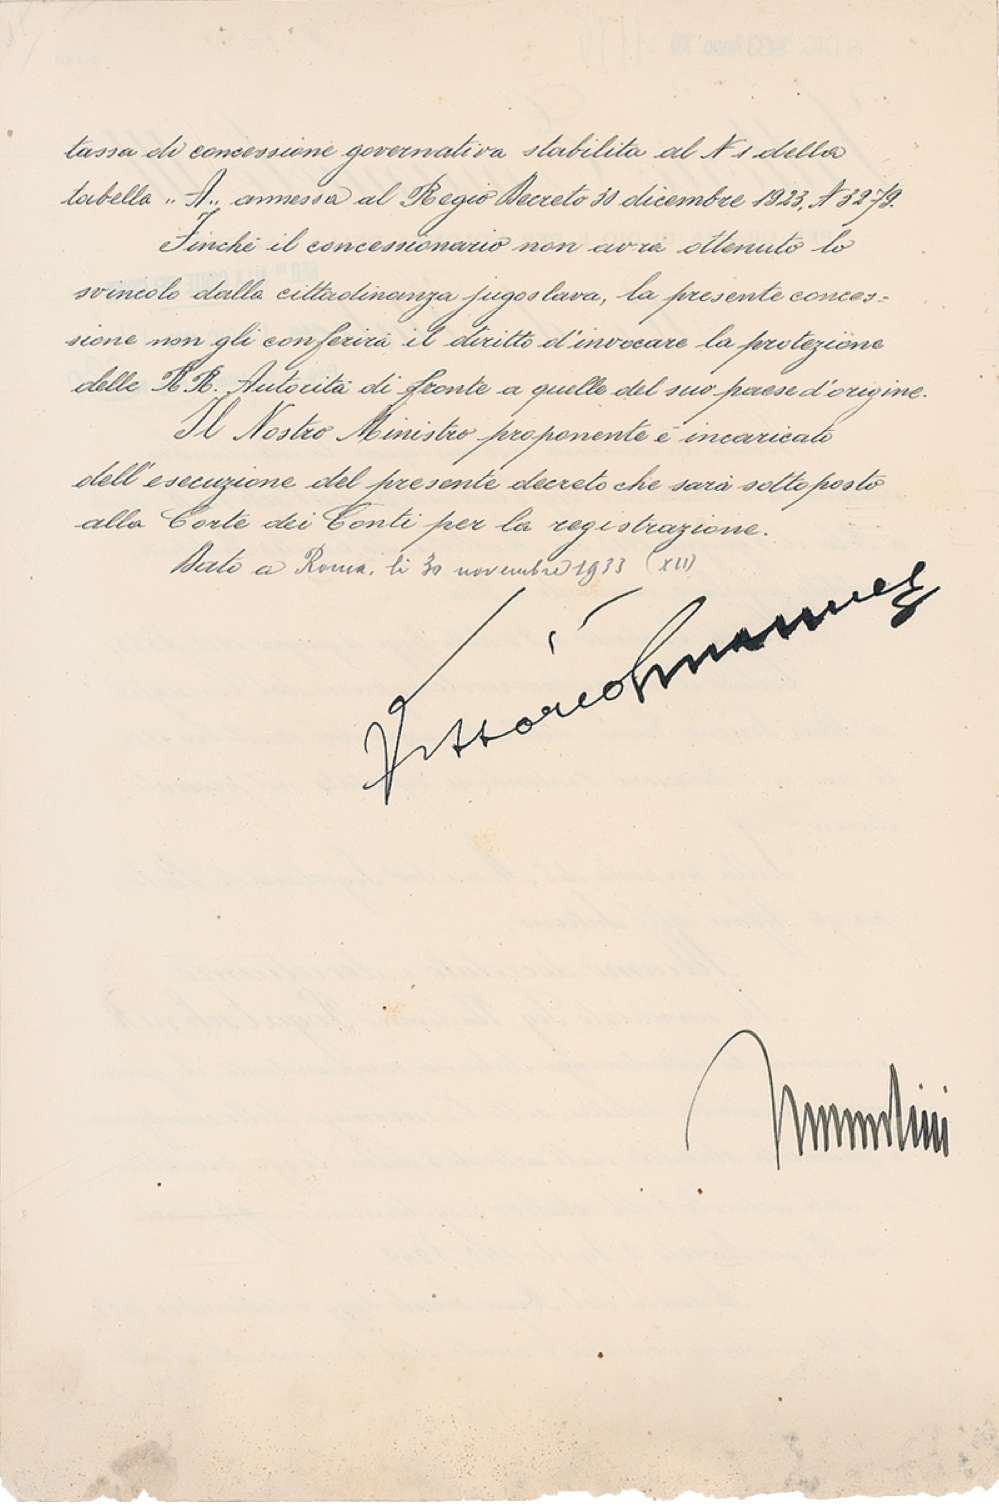 tassa di concessione governativa stabilita al N 1 della
tabella „ A „ annessa al Regio Decreto 30 dicembre 1923, N 3279.
Finchè il concessionario non avrà ottenuto lo
svincolo dalla cittadinanza jugoslava, la presente conces=
sione non gli conferirà il diritto d'invocare la protezione
delle RR. Autorità di fronte a quelle del suo paese d'origine.
Il Nostro Ministro proponente è incaricato
dell'esecuzione del presente decreto che sarà sottoposto
alla Corte dei Conti per la registrazione.
Dato a Roma, lì 30 novembre 1933 (XII)
Vittorio Emanuele
Mussolini